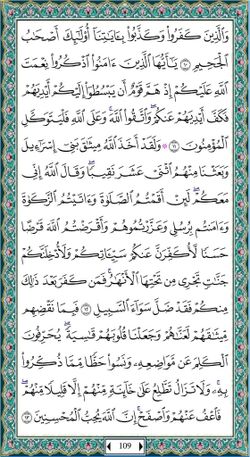 وَالَّذِينَ كَفَرُوا وَكَذَّبُوا بِـَٔايَـٰتِنَا أُوْلَـٰٓئِكَ أَصْحَـٰبُ
الْجَحِيمِ ١٠ يَـٰٓأَيُّهَا الَّذِينَ ءَامَنُوا اذْكُرُوا نِعْمَتَ
اللَّهِ عَلَيْكُمْ إِذْ هَمَّ قَوْمٌ أَن يَبْسُطُوٓا إِلَيْكُمْ أَيْدِيَهُمْ
فَكَفَّ أَيْدِيَهُمْ عَنكُمْ وَاتَّقُوا اللَّهَ وَعَلَى اللَّهِ فَلْيَتَوَكَّلِ
الْمُؤْمِنُونَ ١١ وَلَقَدْ أَخَذَ اللَّهُ مِيثَـٰقَ بَنِىٓ إِسْرَٰٓءِيلَ
وَبَعَثْنَا مِنْهُمُ اثْنَىْ عَشَرَ نَقِيبًا وَقَالَ اللَّهُ إِنِّى
مَعَكُمْ لَئِنْ أَقَمْتُمُ الصَّلَوٰةَ وَءَاتَيْتُمُ الزَّكَوٰةَ
وَءَامَنتُم بِرُسُلِى وَعَزَّرْتُمُوهُمْ وَأَقْرَضْتُمُ اللَّهَ قَرْضًا
حَسَنًا لَّأُكَفِّرَنَّ عَنكُمْ سَيِّـَٔاتِكُمْ وَلَأُدْخِلَنَّكُمْ
جَنَّـٰتٍ تَجْرِى مِن تَحْتِهَا الْأَنْهَـٰرُ فَمَن كَفَرَ بَعْدَ ذَٰلِكَ
مِنكُمْ فَقَدْ ضَلَّ سَوَآءَ السَّبِيلِ ١٢ فَبِمَا نَقْضِهِم
مِّيثَـٰقَهُمْ لَعَنَّـٰهُمْ وَجَعَلْنَا قُلُوبَهُمْ قَـٰسِيَةً يُحَرِّفُونَ
الْكَلِمَ عَن مَّوَاضِعِهِ وَنَسُوا حَظًّا مِّمَّا ذُكِّرُوا
بِهِ وَلَا تَزَالُ تَطَّلِعُ عَلَىٰ خَآئِنَةٍ مِّنْهُمْ إِلَّا قَلِيلًا مِّنْهُمْ
فَاعْفُ عَنْهُمْ وَاصْفَحْ إِنَّ اللَّهَ يُحِبُّ الْمُحْسِنِينَ ١٣
109